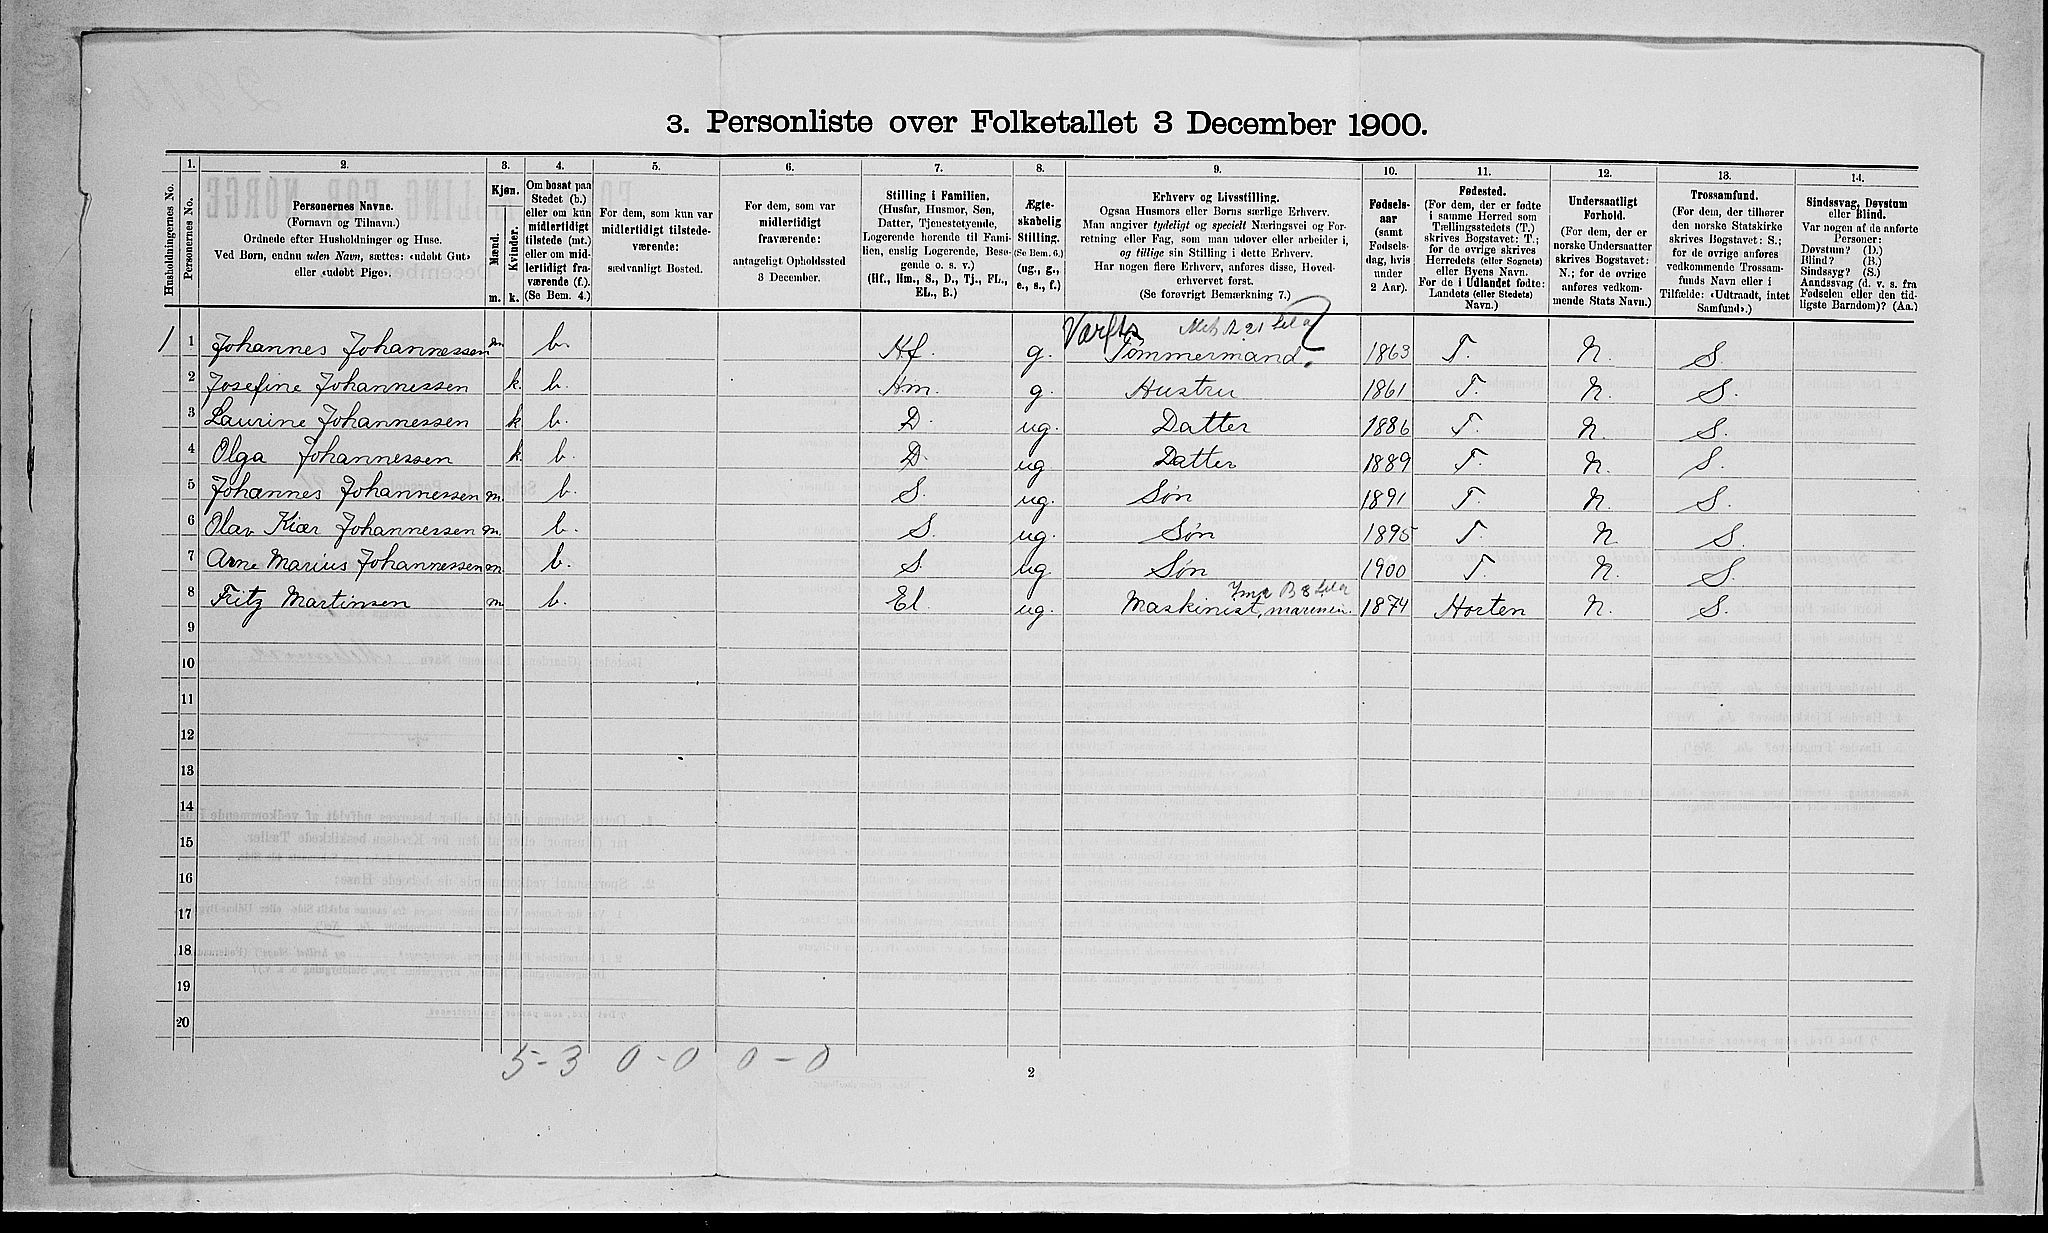 3. Personliste over Folketallet 3 December 1900.
Husholdningernes No.
1. Personernes No.
2. Personernes Navne. (Fornavn og Tilnavn.) Ordnede efter Husholdninger og Huse. Ved Børn, endnu uden Navn, sættes: «udøbt Gut» eller «udøbt Pige».
3. Kjøn. Mænd. m. Kvinder. k.
4. Om bosat paa Stedet (b.) eller om kun midlertidigt tilstede (mt.) eller om midlertidigt fraværende (f.). (Se Bem. 4.)
5. For dem, som kun var midlertidigt tilstedeværende: sædvanligt Bosted.
6. For dem, som var midlertidigt fraværende: antageligt Opholdssted 3 December.
7. Stilling i Familien. (Husfar, Husmor, Søn, Datter, Tjenestetyende, Logerende hørende til Familien, enslig Logerende, Besøgende o. s. v.) (Hf., Hm., S., D., Tj., FL., EL., B.)
8. Ægteskabelig Stilling. (Se Bem. 6.) (ug., g., e., s., f.)
9. Erhverv og Livsstilling. Ogsaa Husmors eller Børns særlige Erhverv. Man angiver tydeligt og specielt Næringsvei og Forretning eller Fag, som man udøver eller arbeider i, og tillige sin Stilling i dette Erhverv. Har nogen flere Erhverv, anføres disse, Hovederhvervet først. (Se forøvrigt Bemærkning 7.)
10. Fødselsaar (samt Fødselsdag, hvis under 2 Aar).
11. Fødested. (For dem, der er fødte i samme Herred som Tællingsstedets (T.) skrives Bogstavet: T.; for de øvrige skrives Herredets (eller Sognets) eller Byens Navn. For de i Udlandet fødte: Landets (eller Stedets) Navn.)
12. Undersaatligt Forhold. (For dem, der er norske Undersaatter skrives Bogstavet: N.; for de øvrige anføres vedkommende Stats Navn.)
13. Trossamfund. (For dem, der tilhører den norske Statskirke skrives Bogstavet: S.; for de øvrige anføres vedkommende Trossamfunds Navn eller i Tilfælde: «Udtraadt, intet Samfund».)
14. Sindssvag, Døvstum eller Blind. Var nogen af de anførte Personer: Døvstum? (D.) Blind? (B.) Sindssyg? (S.) Aandssvag (d. v. s. fra Fødselen eller den tidligste Barndom)? (Aa.)
1 1 Johannes Johannessen m b. Hf. g. Varfts Tømmermand. 1863 T. N. S.
2 Josefine Johannessen k. b. Hm. g. Hustru 1861 T. N. S.
3 Laurine Johannessen k b. D. ug. Datter 1886 T. N. S.
4 Olga Johannessen k. b. D. ug Datter 1889 T. N. S.
5 Johannes Johannessen m. b. S. ug. Søn 1891 T. N S.
6 Olav Kiær Johannessen m. b. S. ug. Søn 1895 T. N. S.
7 Arne Marius Johannessen m b. S. ug. Søn 1900 T. N. S.
8 Fritz Martinsen m b. El. ug. Maskinist, marinen. 1874 Horten N. S.
9
10
11
12
13
14
15
16
17
18
19
20
5 - 3 0 - 0 0 - 0
2